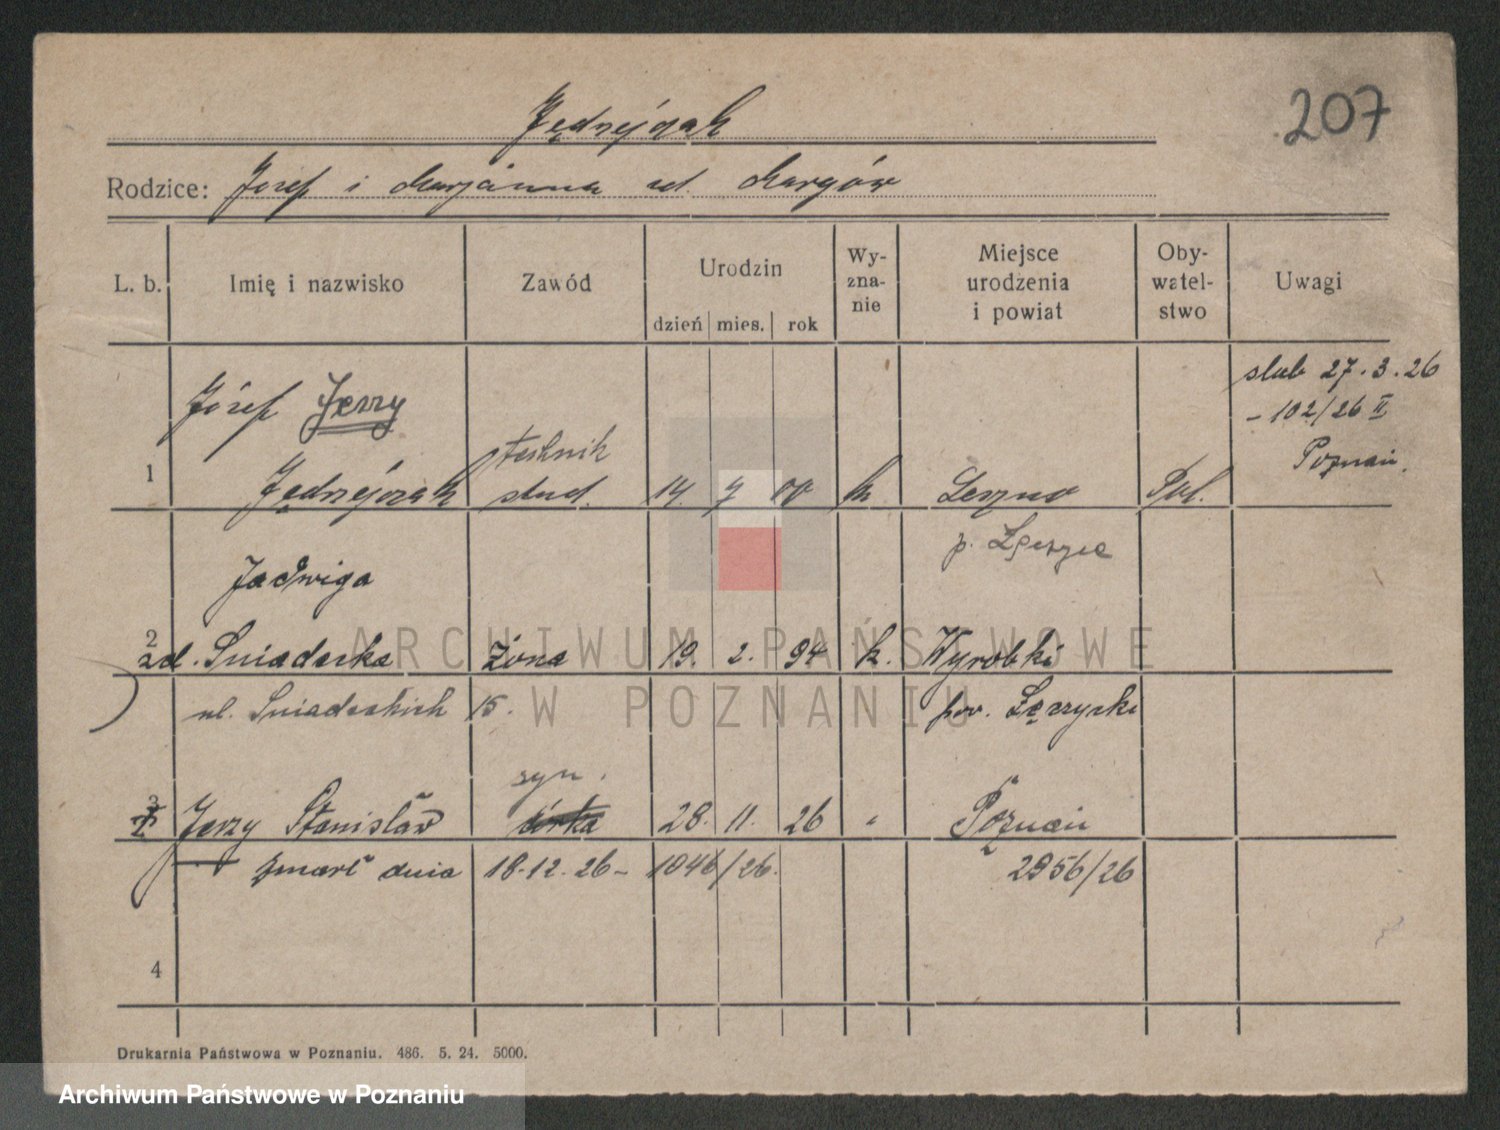 207
Jędrzejczak
Rodzice: Józef i Marjanna zd.
L. b. Imię i nazwisko Zawód Urodzin dzień mies. rok Wy-zna-nie Miejsce urodzenia i powiat Oby-watel-stwo Uwagi
ślub 27.3.26
Józef Jerzy
- 102/26 II
technik
Poznań.
1 Jędrzejczak stud. 14. 7 00 k Pol.
Jadwiga
2 zd. Śniadecka żona 19. 2. 94 k. Wyrobki
ul. Śniadeckich 15. pow. Łęczycki
syn.
3 Jerzy Stanisław córka 28. 11. 26 " Poznań
zmarł dnia 18.12.26 - 1046/26. 2956/26
4
Drukarnia Państwowa w Poznaniu. 486. 5. 24. 5000.
ARCHIWUM PAŃSTWOWE
W POZNANIU
Archiwum Państwowe w Poznaniu